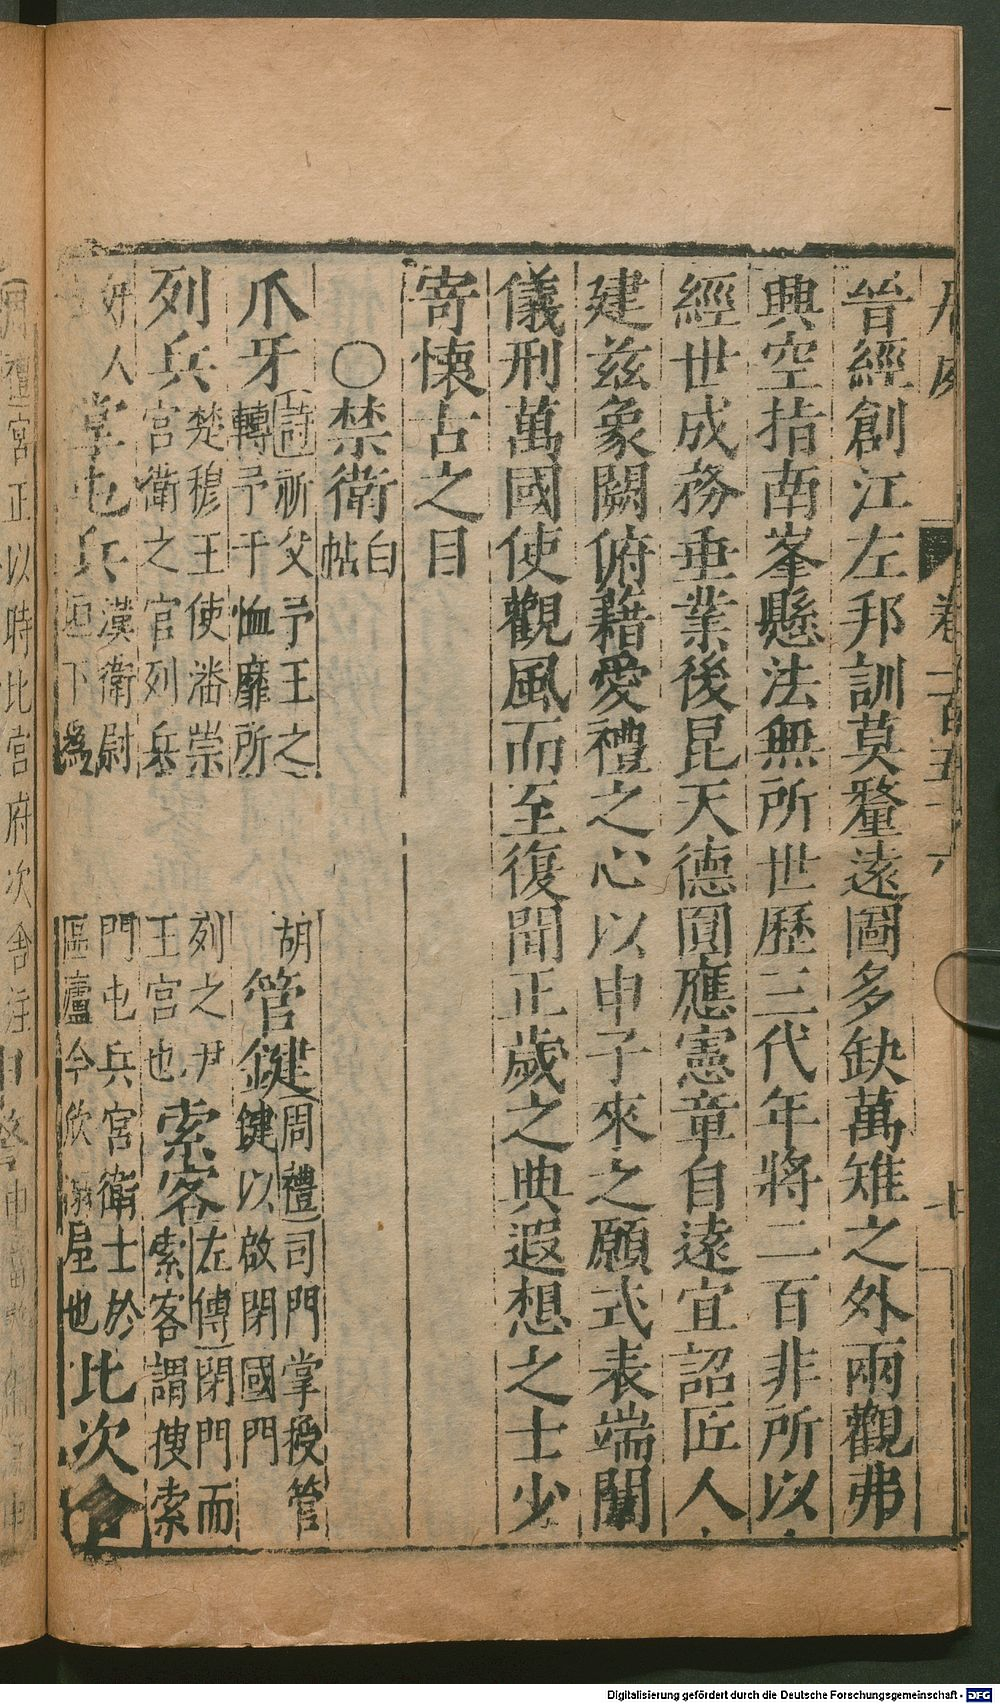 卷二百五十六
晉經創江左邦訓莫釐遠圖多缺萬雉之外兩觀弗
興空指南峯懸法無所世歷三代年將二百非所以
經世成務垂業後昆天德圓應憲章自遠宜詔匠人
建茲象闕俯藉愛禮之心以申子來之願式表端闈
儀刑萬國使觀風而至復聞正歲之典遐想之士少
寄懷古之目
○禁衛白
帖
爪牙詩祈父予王之
轉予于恤靡所
胡
管鍵周禮司門掌授管
鍵以啟閉國門
列兵楚穆王使潘崇
宮衛之官列兵
列之尹
王宮也
索客左傳閉門而
索客謂搜索
奸人
掌屯兵漢衛尉
下為
門屯兵宮衛士於
區廬今仗屋也
比次舍
宮正以時比宮府次舍注
Digitalisierung gefördert durch die Deutsche Forschungsgemeinschaft - DFG